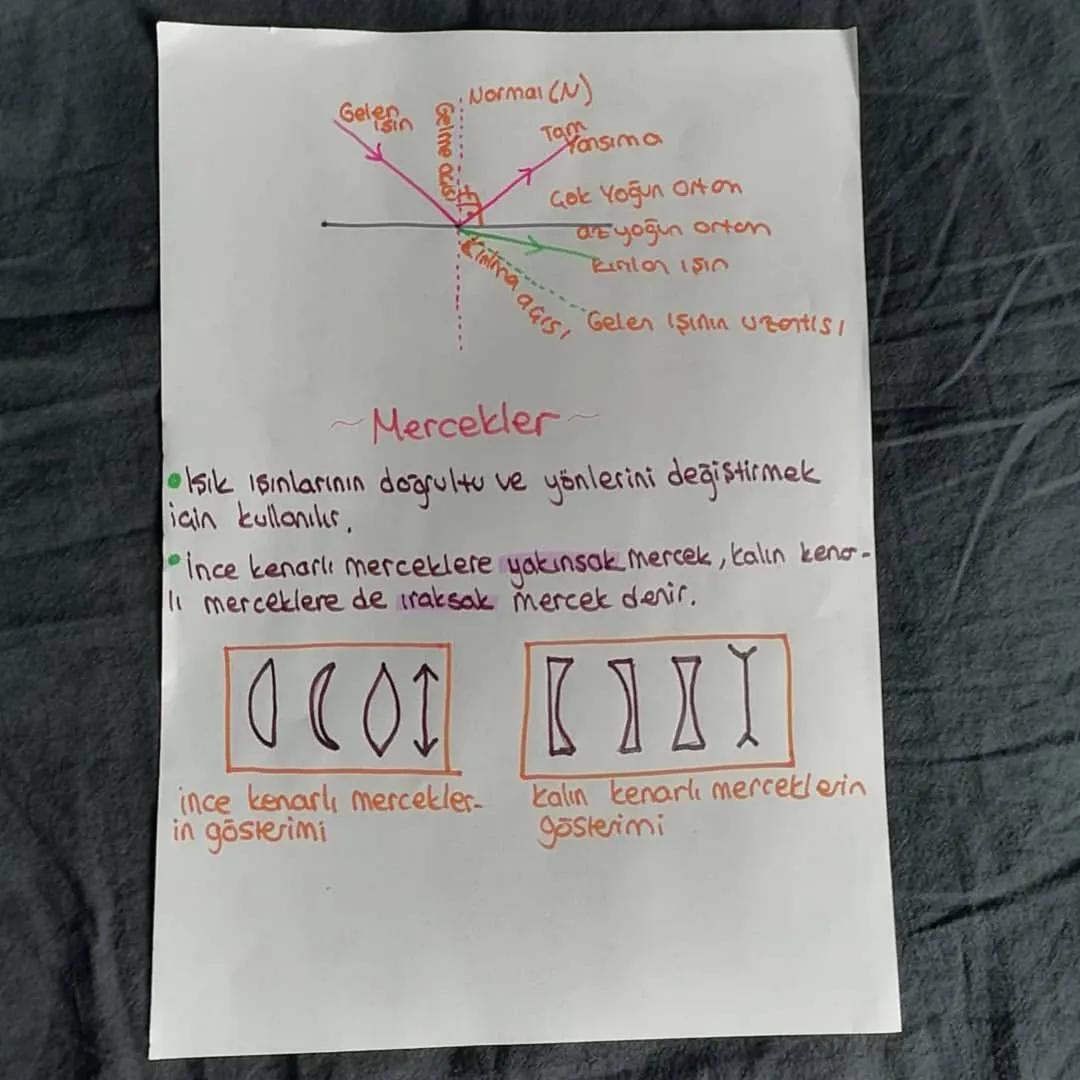 Normal (N)
Gelen
ışın
Gelme açısı
Tam
Yansıma
Çok Yoğun Ortam
az yoğun ortam
Kırılan ışın
Kırılma açısı
Gelen ışının uzantısı
~ Mercekler ~
• Işık ışınlarının doğrultu ve yönlerini değiştirmek
için kullanılır.
• İnce kenarlı merceklere yakınsak mercek, kalın kenar-
lı merceklere de ıraksak mercek denir.
ince kenarlı mercekler-
in gösterimi
kalın kenarlı merceklerin
gösterimi